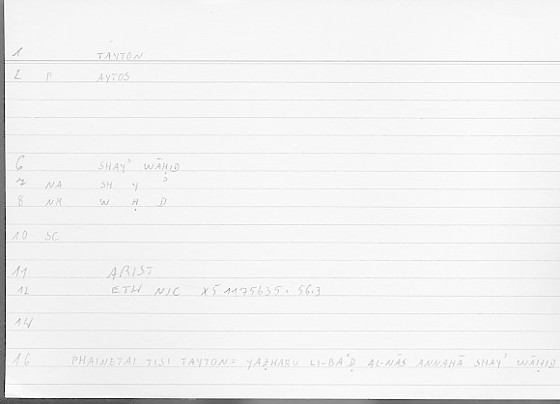 1 TAYTON
2 P AYTOS
6 SHAYʾ WĀḤID
7 NA SH Y ʾ
8 NK W Ḥ D
10 SC
11 ARIST
12 ETH NIC X5 1175635. 56.3
14
16 PHAINETAI TISI TAYTON= YAẒHARU LI-BAʿḌ AL-NĀS ANNAHĀ SHAYʾ WĀḤID